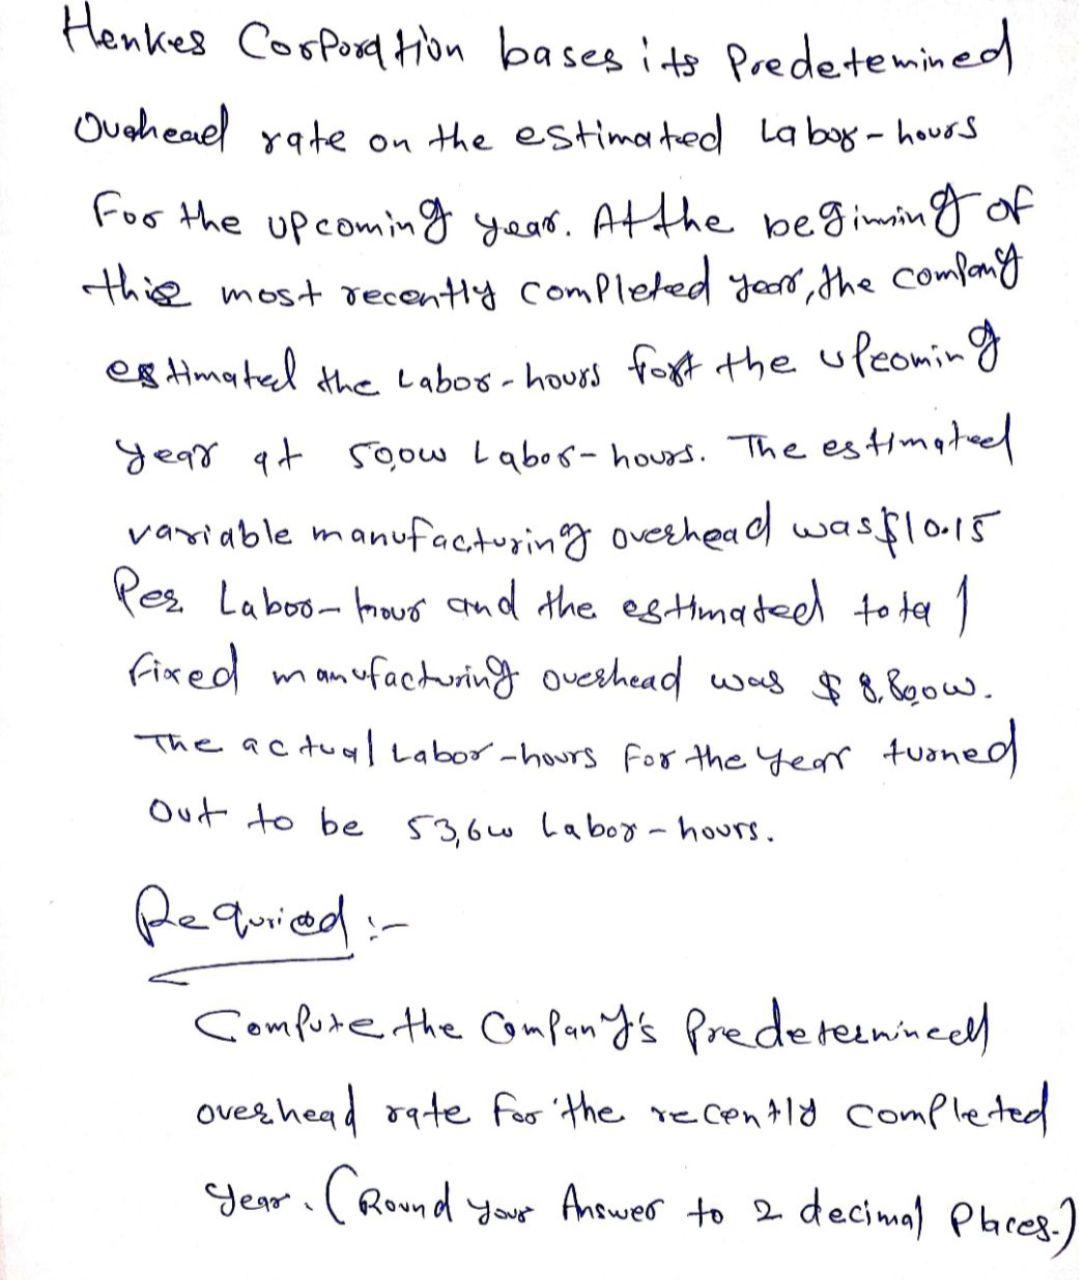 Henkes Corporation bases its Predetemined
Overhead rate on the estimated Labor-hours
For the upcoming year. At the beginning of
this most recently completed year, the company
estimated the Labor-hours for the upcoming
year at 50,000 Labor-hours. The estimated
variable manufacturing overhead was $10.15
Per Labor-hour and the estimated total
fixed manufacturing overhead was $
The actual Labor-hours For the Year turned
Out to be 53,600 Labor-hours.
Requried :-
Compute the Company's Predetermined
overhead rate For the recently completed
Year. (Round your Answer to 2 decimal Places.)